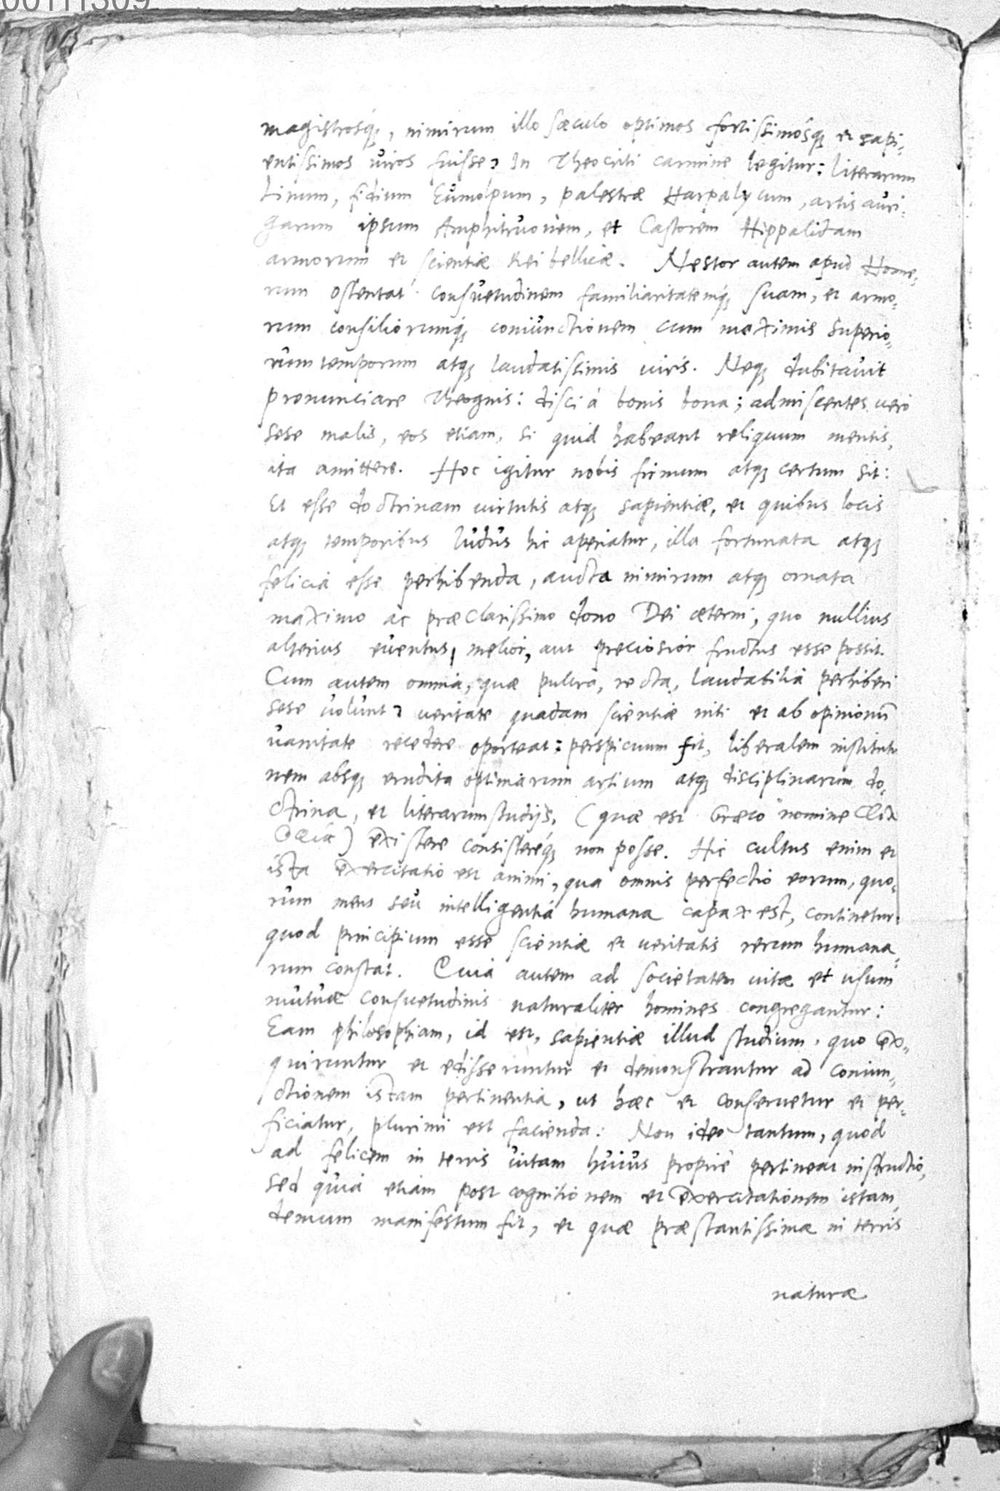 00111309
magistrosq́, nimirum illo sæculo optimos fortissimosq́ et sapi-
entissimos viros fuisse, In Theocriti carmine legitur: literarum
Linum, fidium Eumolpum, palestræ Harpalycum, artis auri-
garum ipsum Amphitruonem, et Castorem Hippalidam
armorum et scientiæ Rei bellicæ. Nestor autem apud Home-
rum ostentat consuetudinem familiaritatemq́ suam, et armo-
rum consiliorumq́ coniunctionem cum maximis superio-
rum temporum atq́ laudatissimis viris. Neq́ dubitavit
pronunciare Theognis: disci à bonis bona; admiscentes vero
sese malis, eos etiam, si quid habeant reliquum mentis,
ita amittere. Hoc igitur nobis firmum atq́ certum sit:
Et esse doctrinam virtutis atq́ sapientiæ, et quibus locis
atq́ temporibus ludus hic aperiatur, illa fortunata atq́
felicia esse perhibenda, aucta nimirum atq́ ornata
maximo ac præclarissimo dono Dei æterni, quo nullius
alterius eventus, melior, aut preciosior fructus esse possit.
Cum autem omnia, quæ pulcra, recta, laudabilia perhiberi
sese volunt, veritate quadam scientiæ niti et ab opinionū
vanitate recedere oporteat: perspicuum fit, liberalem institutio
nem absq́ erudita optimarum artium atq́ disciplinarum do-
ctrina, et literarum studijs, (quæ est Græco nomine
) existere consistereq́ non posse. Hic cultus enim et
ista exercitatio est animi, qua omnis perfectio eorum, quo-
rum mens seu intelligentia humana capax est, continetur:
quod principium esse scientiæ et veritatis rerum humana-
rum constat. Quia autem ad societatem vitæ et usum
mutuæ consuetudinis naturaliter homines congregantur:
Eam philosophiam, id est, sapientiæ illud studium, quo ex-
quiruntur et edisseruntur et demonstrantur ad coniun-
ctionem istam pertinentia, ut hæc et conservetur et per-
ficiatur, plurimi est facienda: Non ideo tantum, quod
ad felicem in terris vitam huius propriè pertineat instructio,
sed quia etiam post cognitionem et exercitationem istam
demum manifestum fit, et quæ præstantissimæ in terris
naturæ